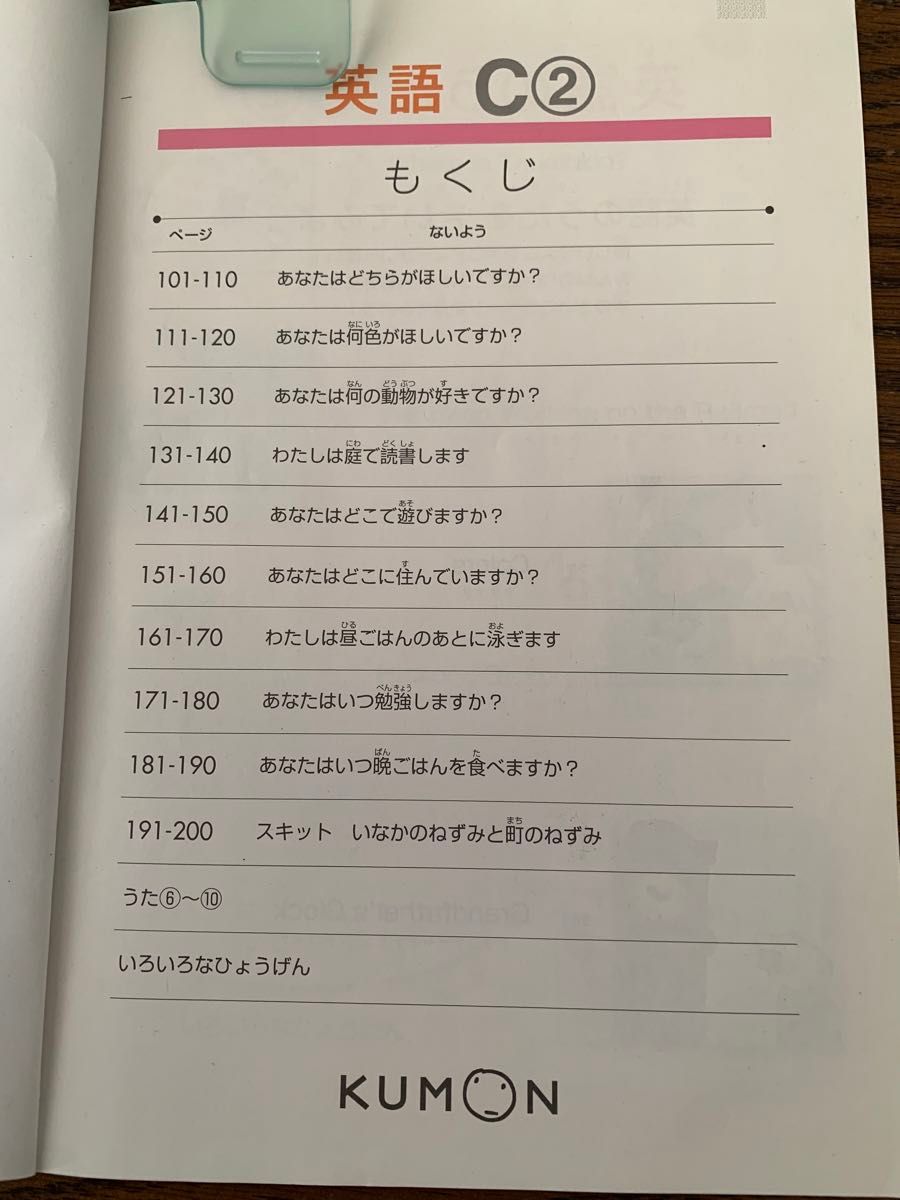 英語 C②
もくじ
ページ ないよう
101-110 あなたはどちらがほしいですか？
111-120 あなたは何色がほしいですか？
121-130 あなたは何の動物が好きですか？
131-140 わたしは庭で読書します
141-150 あなたはどこで遊びますか？
151-160 あなたはどこに住んでいますか？
161-170 わたしは昼ごはんのあとに泳ぎます
171-180 あなたはいつ勉強しますか？
181-190 あなたはいつ晩ごはんを食べますか？
191-200 スキット いなかのねずみと町のねずみ
うた⑥〜⑩
いろいろなひょうげん
KUMON